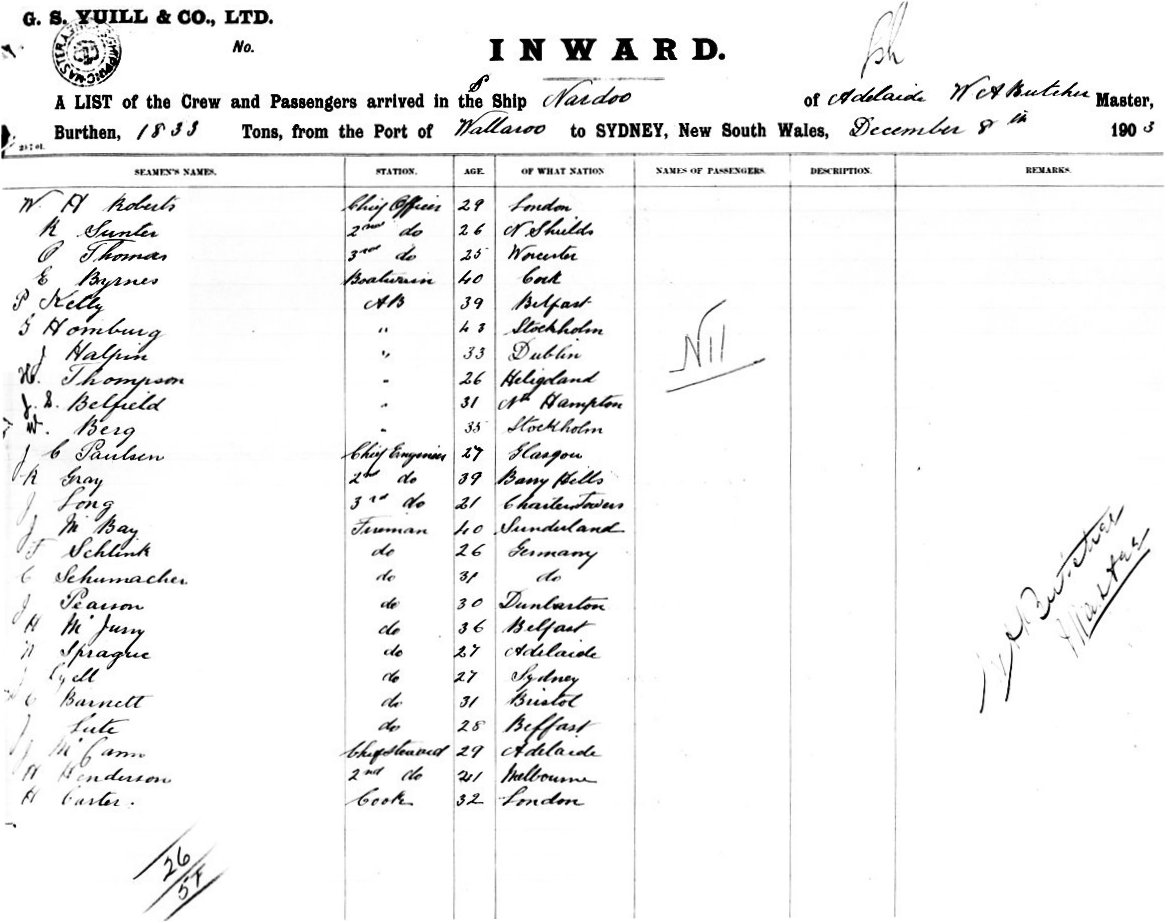 G. S. YUILL & CO., LTD.
No.
INWARD.
A LIST of the Crew and Passengers arrived in the S Ship Nardoo of Adelaide W A Butcher Master,
Burthen, 1833 Tons, from the Port of Wallaroo to SYDNEY, New South Wales, December 8th 1903
SEAMEN'S NAMES. STATION. AGE. OF WHAT NATION NAMES OF PASSENGERS. DESCRIPTION. REMARKS.
W. H Roberts Chief Officer 29 London
R Sunter 2nd do 26 N Shields
O Thomas 3rd do 25 Worcester
E Byrnes Boatswain 40 Cork
P Kelly AB 39 Belfast
G Homburg " 43 Stockholm
J Halpin " 33 Dublin
H. Thompson " 26 Heligoland
J. S. Belfield " 31 Nth Hampton
W. Berg " 35 Stockholm
Nil
J C Paulsen Chief Engineer 27 Glasgow
R Gray 2nd do 39 Barry Hills
J Long 3rd do 21 Charters Towers
J Mc Bay Fireman 40 Sunderland
F Schlink do 26 Germany
C Schumacher do 31 do
J Pearson do 30 Dunbarton
H Mc Jury do 36 Belfast
N Sprague do 27 Adelaide
J Lyell do 27 Sydney
C Barnett do 31 Bristol
J Lute do 28 Belfast
J Mc Cann Chief Steward 29 Adelaide
H Henderson 2nd do 21 Melbourne
H Carter. Cook 32 London
W A Butcher
Master
26